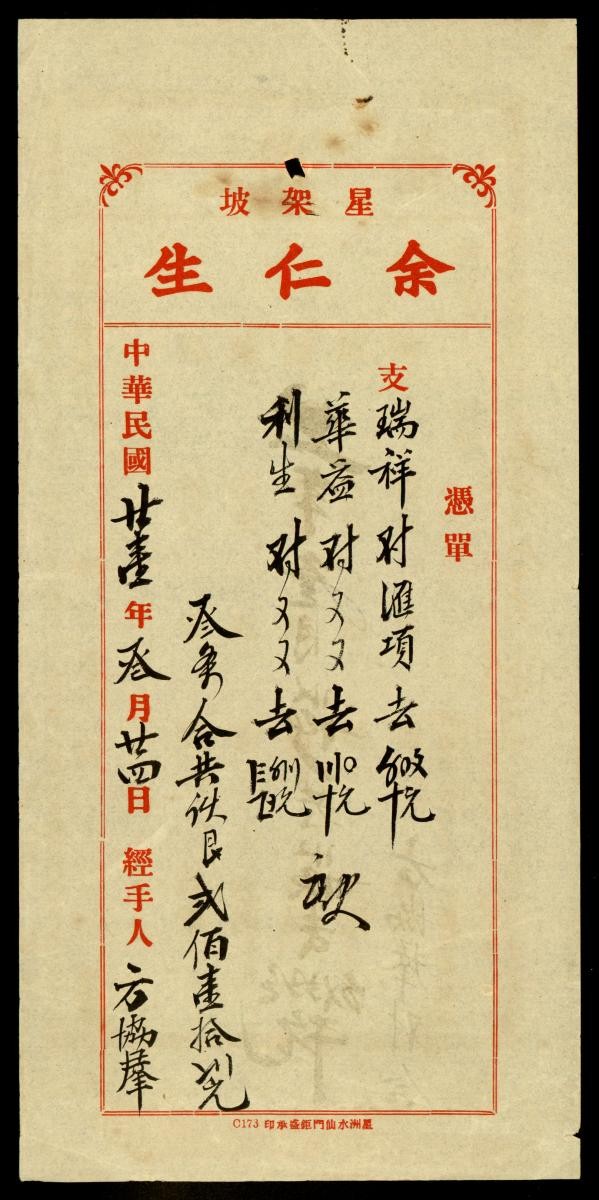 星架坡
余仁生
憑單
支 瑞祥对滙項去
華益对又又去
利生对又又去
叁条合共伏艮弍佰壹拾
中華民國廿壹年叁月廿四日 經手人 方協羣
星洲水仙門鉅盛承印 C173